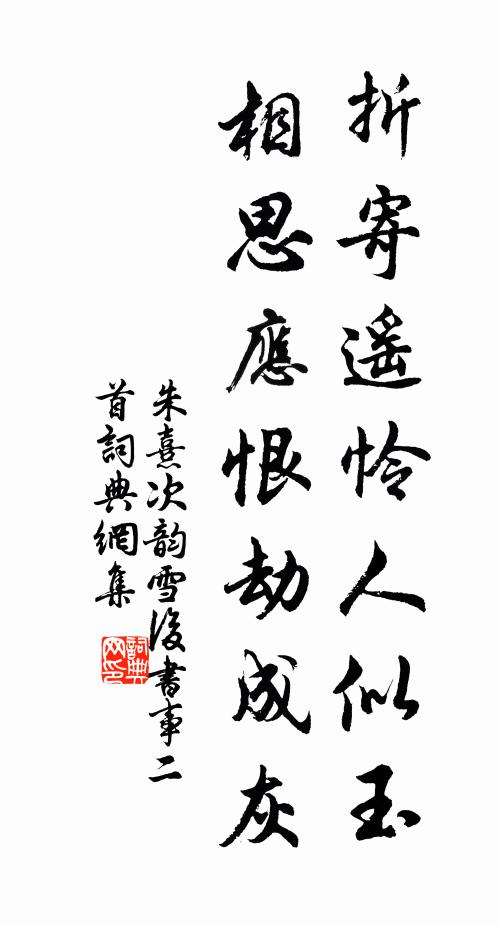 折寄遥怜人似玉
相思應恨劫成灰
朱熹次韵雪後書事二
首詞典網集
詞典
网印